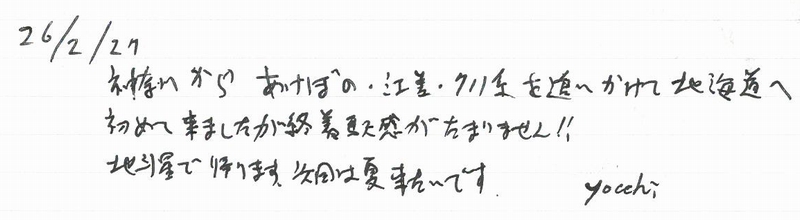 26/2/27
神奈川から あけぼの・江差・クリ系を追いかけて北海道へ
初めて来ましたが終着駅感がたまりません!!
北斗星で帰ります。次回は夏来たいです
yocchi